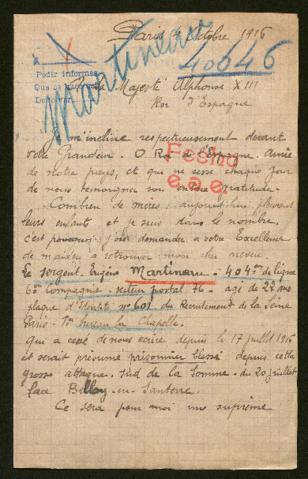 Paris 4 Octobre 1916
Martineau
40646
Pedir informes
A Sa Majesté Alphonse XIII
Roi d'Espagne
Je m'incline respectueusement devant
votre Grandeur. O Roi de l'Espagne. Amie
de notre pays, et qui ne cesse chaque jour
de nous témoigner son entière
Fecho
e.e.e.
Combien de mères, aujourd'hui pleurent
leurs enfants et je suis dans le nombre,
c'est pourquoi je demander à votre Excellence
de m'aider à retrouver mon cher neveu
Le Sergent. Eugène Martineau - 404e de ligne
6e Compagnie - Secteur postal 76 - agé de 22 ans
plaque d'Identité no 601 du Recrutement de la Seine
Paris - bureau La Chapelle.
qui a cessé de nous écrire depuis le 17 juillet 1916
et serait présumé prisonnier blessé depuis cette
grosse attaque. Sud de la Somme - du 20 juillet
face Belloy-en-Santerre
Ce sera pour moi une suprême